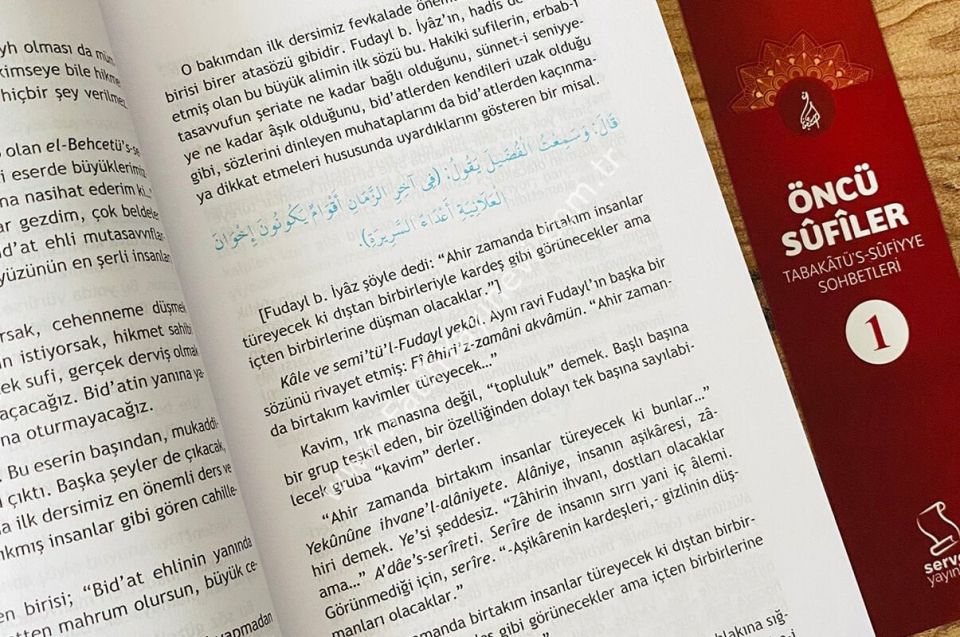 yh olması da
kimseye bile
hiçbir şey verilmez
olan el-Behcetü's-
i eserde büyüklerimiz
na nasihat ederim ki..."
ar gezdim, çok beldele
id'at ehli mutasavvıflar-
yüzünün en şerli insanlar
orsak, cehenneme düşmek
n istiyorsak, hikmet sahibi
ek sufi, gerçek derviş olmak
açacağız. Bid'atin yanına ya-
na oturmayacağız.
. Bu eserin başından, mukaddi-
çıktı. Başka şeyler de çıkacak,
a ilk dersimiz en önemli ders ve
kmış insanlar gibi gören cahille-
en birisi; "Bid'at ehlinin yanında
etten mahrum olursun, büyük ce-
yapmadan
O bakımdan ilk dersimiz fevkalade önem
birisi birer atasözü gibidir. Fudayl b. İyâz'ın, hadis de
etmiş olan bu büyük alimin ilk sözü bu. Hakiki sufilerin, erbab-ı
tasavvufun şeriate ne kadar bağlı olduğunu, sünnet-i seniyye-
ye ne kadar âşık olduğunu, bid'atlerden kendileri uzak olduğu
gibi, sözlerini dinleyen muhataplarını da bid'atlerden kaçınma-
ya dikkat etmeleri hususunda uyardıklarını gösteren bir misal.
قَالَ: وَسَمِعْتُ الْفُضَيْلَ يَقُولُ: (فِي آخِرِ الزَّمَانِ أَقْوَامٌ يَكُونُونَ إِخْوَانَ
الْعَلَانِيَةِ أَعْدَاءَ السَّرِيرَةِ).
[Fudayl b. İyâz şöyle dedi: "Ahir zamanda birtakım insanlar
türeyecek ki dıştan birbirleriyle kardeş gibi görünecekler ama
içten birbirlerine düşman olacaklar."]
Kâle ve semi'tü'l-Fudayl yekûl. Aynı ravi Fudayl'ın başka bir
sözünü rivayet etmiş: Fî âhiri'z-zamâni akvâmün. "Ahir zaman-
da birtakım kavimler türeyecek..."
Kavim, ırk manasına değil, "topluluk" demek. Başlı başına
bir grup teşkil eden, bir özelliğinden dolayı tek başına sayılabi-
lecek gruba "kavim" derler.
"Ahir zamanda birtakım insanlar türeyecek ki bunlar..."
Yekûnûne ihvane'l-alâniyete. Alâniye, insanın aşikâresi, zâ-
hiri demek. Ye'si şeddesiz. "Zâhirin ihvanı, dostları olacaklar
ama..." A'dâe's-serîreti. Serîre de insanın sırrı yani iç âlemi.
Görünmediği için, serîre. "-Aşikârenin kardeşleri,- gizlinin düş-
manları olacaklar."
zamanda birtakım insanlar türeyecek ki dıştan birbir-
eş gibi görünecekler ama içten birbirlerine
aklara sığ-
ÖNCÜ
SÛFÎLER
TABAKÂTÜ'S-SÛFİYYE
SOHBETLERİ
1
serve
yayın